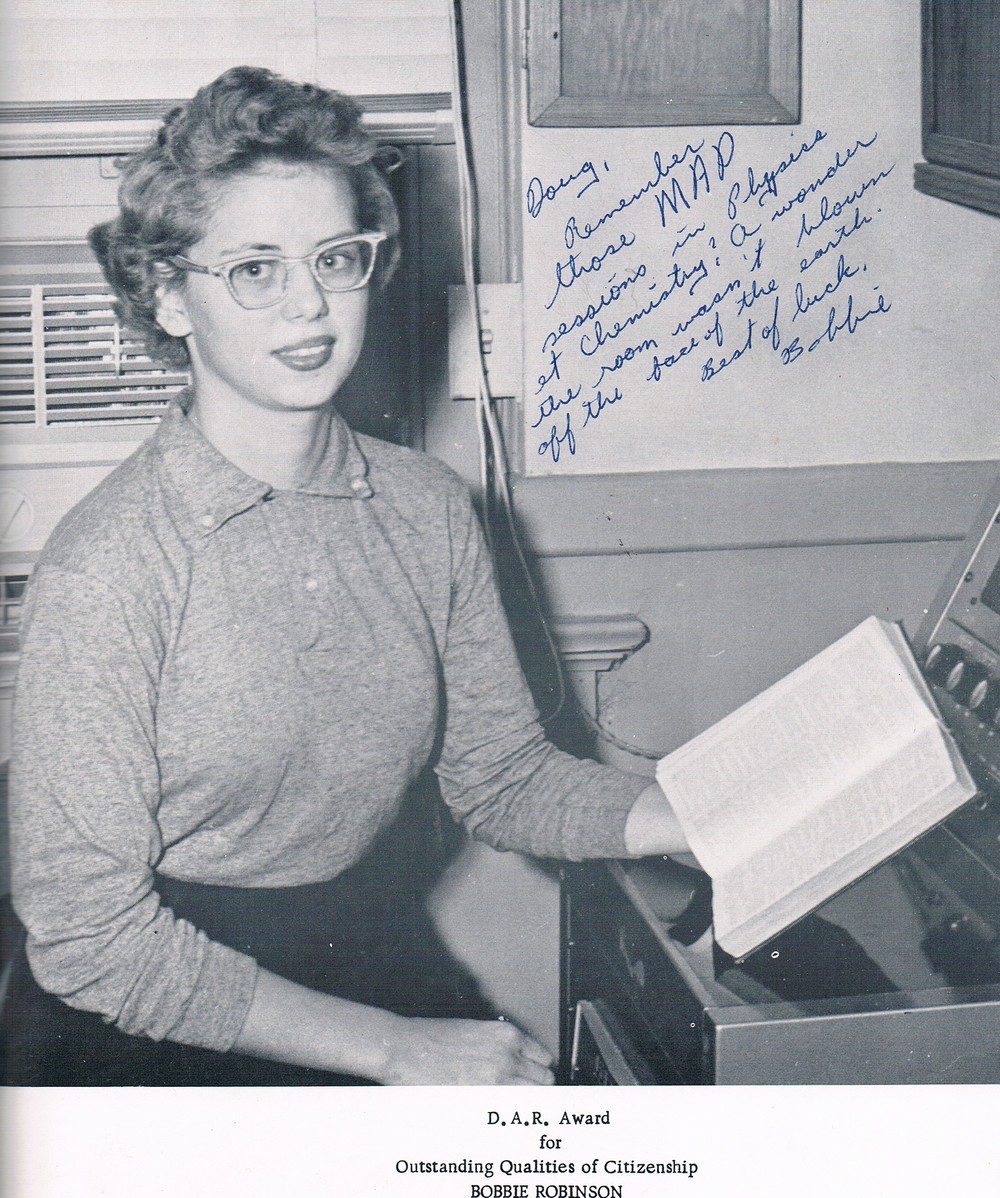 Doug,
Remember
those MAD
sessions in Physics
et Chemistry? A wonder
the room wasn't blown
off the face of the earth.
Best of luck,
Bobbie
D.A.R. Award
for
Outstanding Qualities of Citizenship
BOBBIE ROBINSON